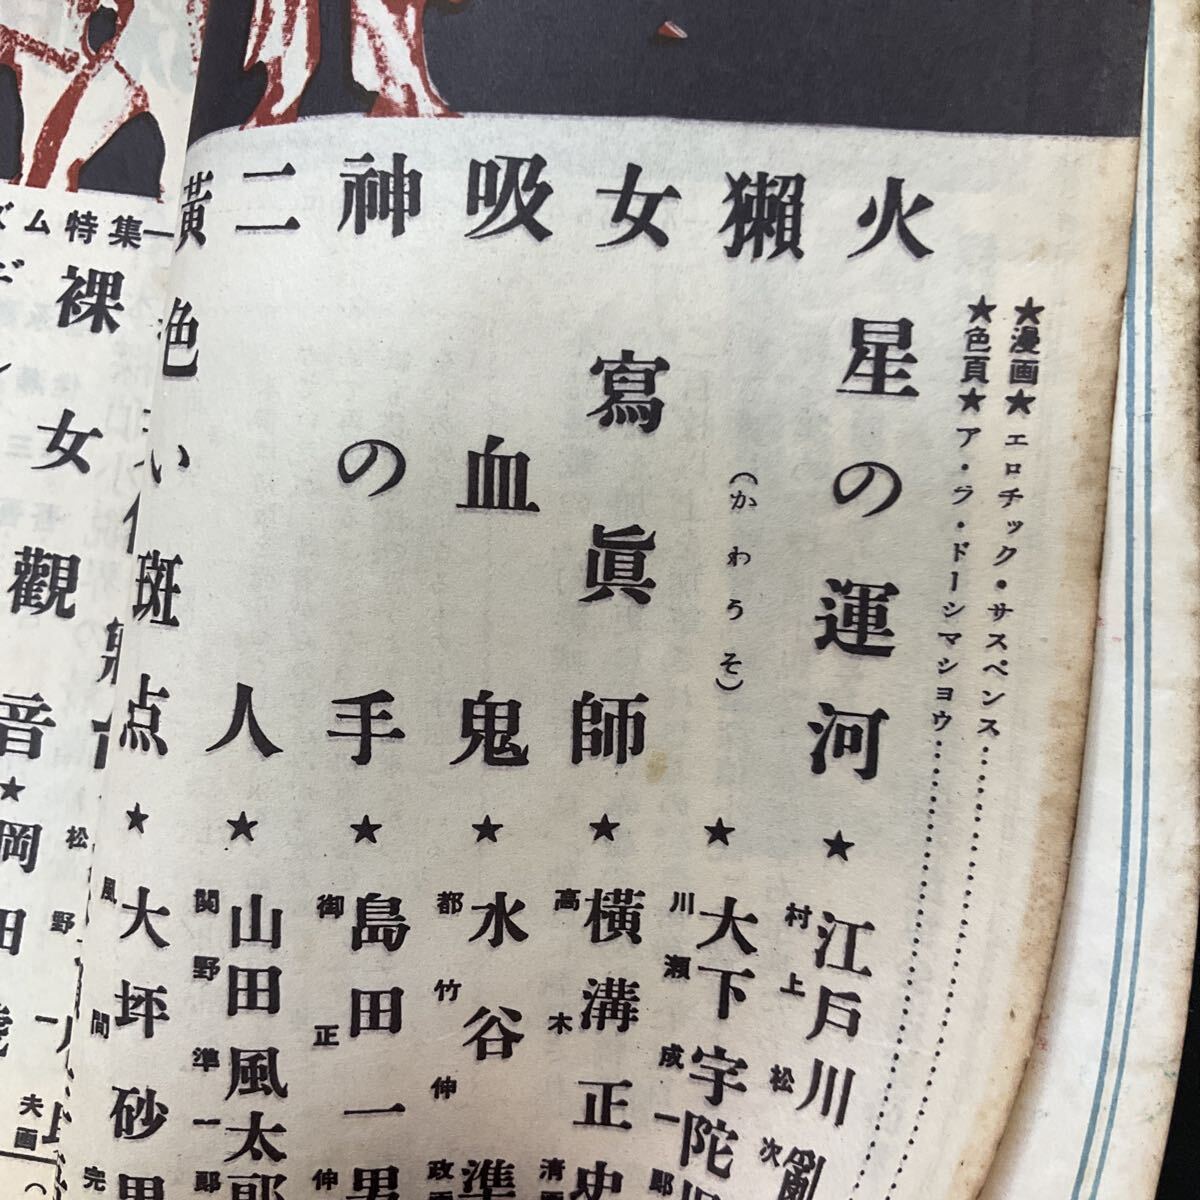 ★漫画★エロチック・サスペンス
★色頁★ア・ラ・ドーシマショウ
火星の運河★江戸川亂
村上松次
獺（かわうそ）★大下宇陀
川瀬成一郎
女寫眞師★横溝正史
高木清画
吸血鬼★水谷準
都竹伸政画
神の手★島田一男
御正伸
二人★山田風太郎
関野準一郎
黃色い斑点★大坪砂男
風間完
ズム特集
裸女觀音★岡田
松野一夫画